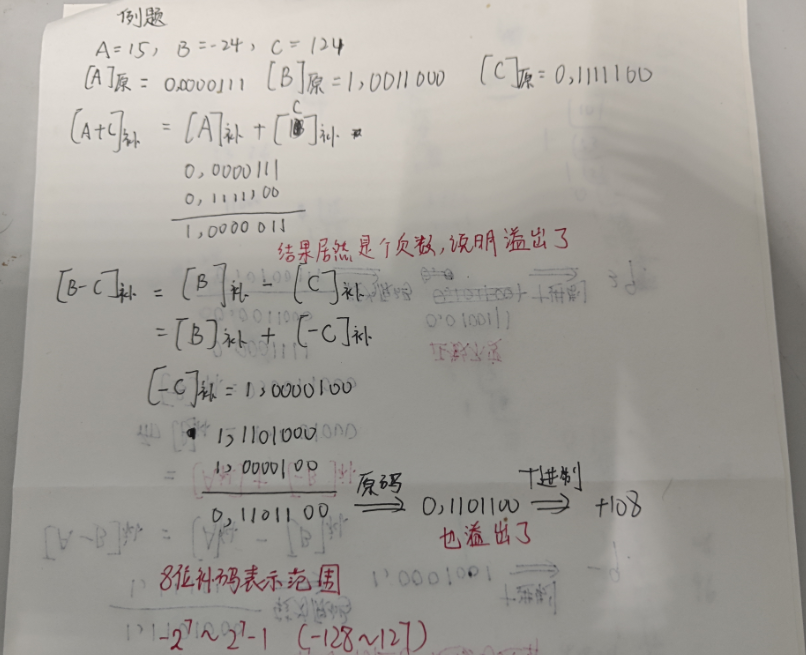 例题
A=15, B=-24, C=124
[A]原 = 0,0000111 [B]原 = 1,0011000 [C]原 = 0,1111100
[A+C]补 = [A]补 + [C]补
0,0000111
0,1111100
1,0000011
结果居然是个负数,说明溢出了
[B-C]补 = [B]补 - [C]补
= [B]补 + [-C]补
[-C]补 = 1,0000100
1,1101000
1,0000100
0,1101100 原码 ⟹ 0,1101100 十进制 ⟹ +108
也溢出了
8位补码表示范围
-2⁷~2⁷-1 (-128~127)